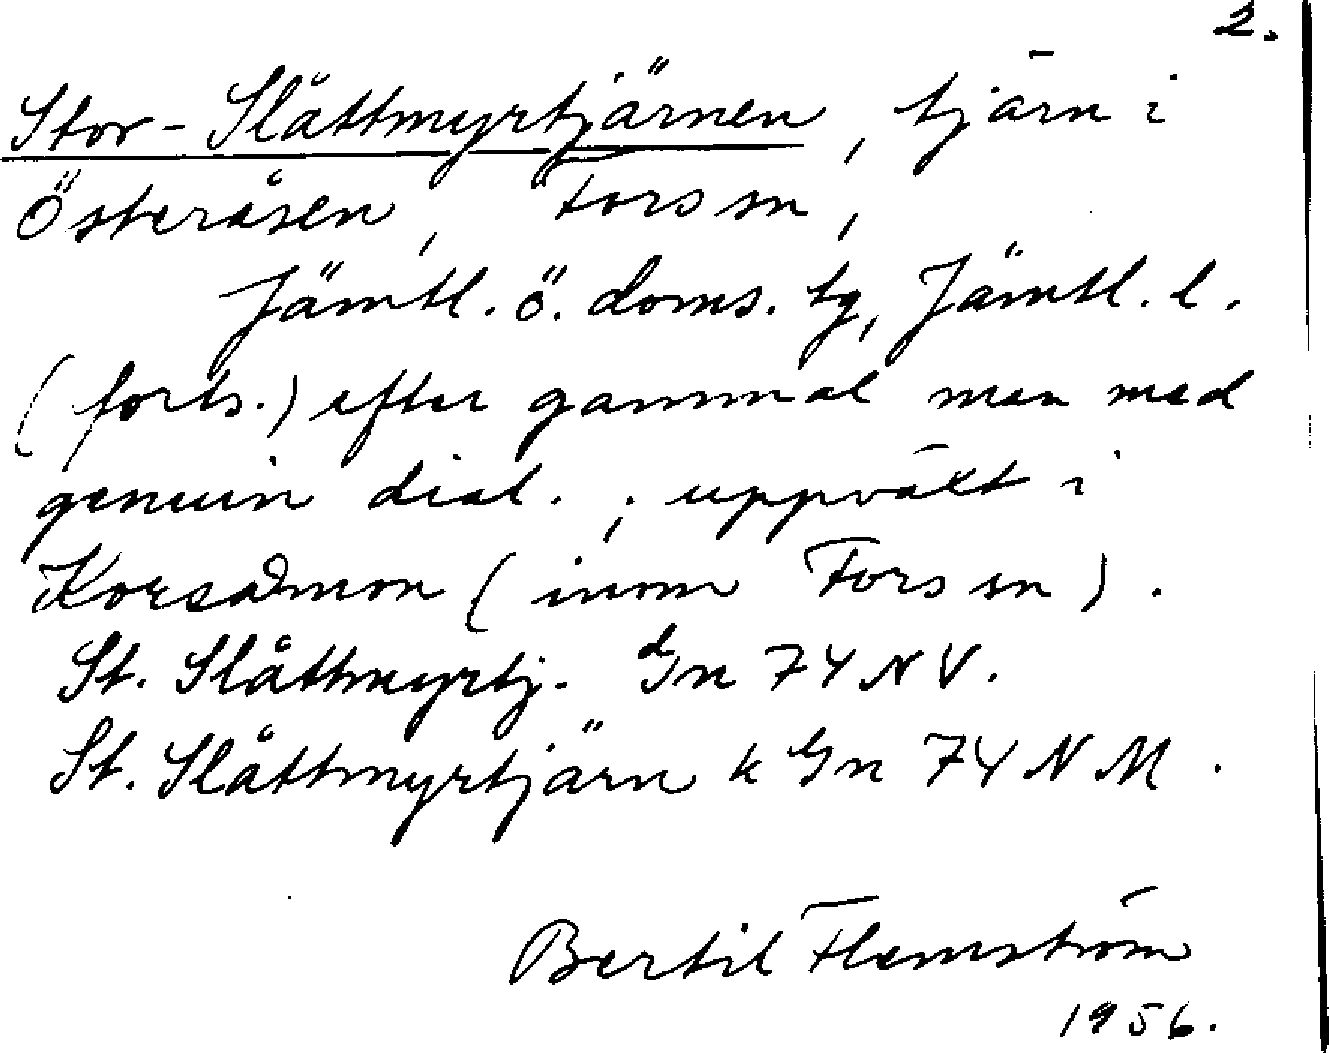 2.
Stor-Slåttmyrtjärnen, tjärn i
Österåsen, Fors sn,
Jämtl. ö. doms. tg, Jämtl. l.
(forts.) efter gammal man med
genuin dial. ; uppväxt i
Korsåmon (inom Fors sn).
St. Slåttmyrtj. Gn 74 NV.
St. Slåttmyrtjärn k Gn 74 N M.
Bertil Flemström
1956.